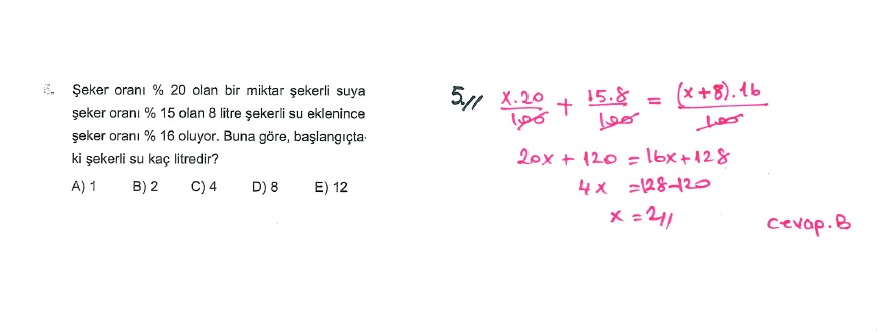 Şeker oranı % 20 olan bir miktar şekerli suya
şeker oranı % 15 olan 8 litre şekerli su eklenince
şeker oranı % 16 oluyor. Buna göre, başlangıçta-
ki şekerli su kaç litredir?
A) 1 B) 2 C) 4 D) 8 E) 12
5.// x.20/100 + 15.8/100 = (x+8).16/100
20x + 120 = 16x + 128
4x = 128-120
x = 2//
cevap.B